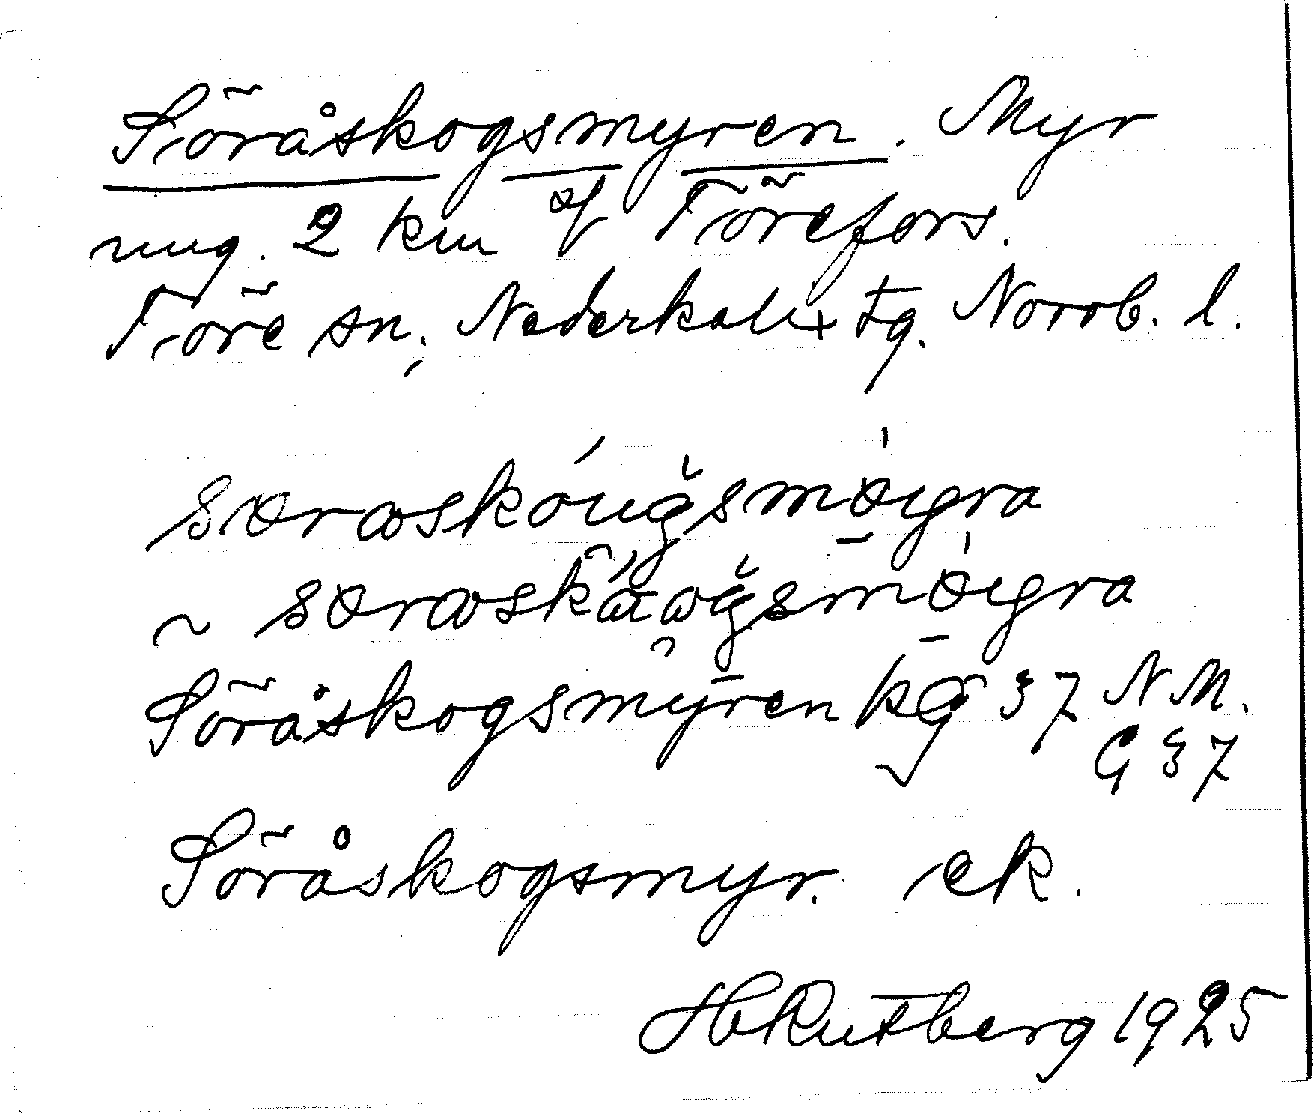 Söråskogsmyren. Myr
ung. 2 km of Törefors.
Töre sn, Nederkalix tg. Norrb. l.
søraskóugsmøyra
~ søraskáogsmøyra
Söråskogsmyren kg 37 N.M.
G 37
Söråskogsmyr. ek.
H Rutberg 1925